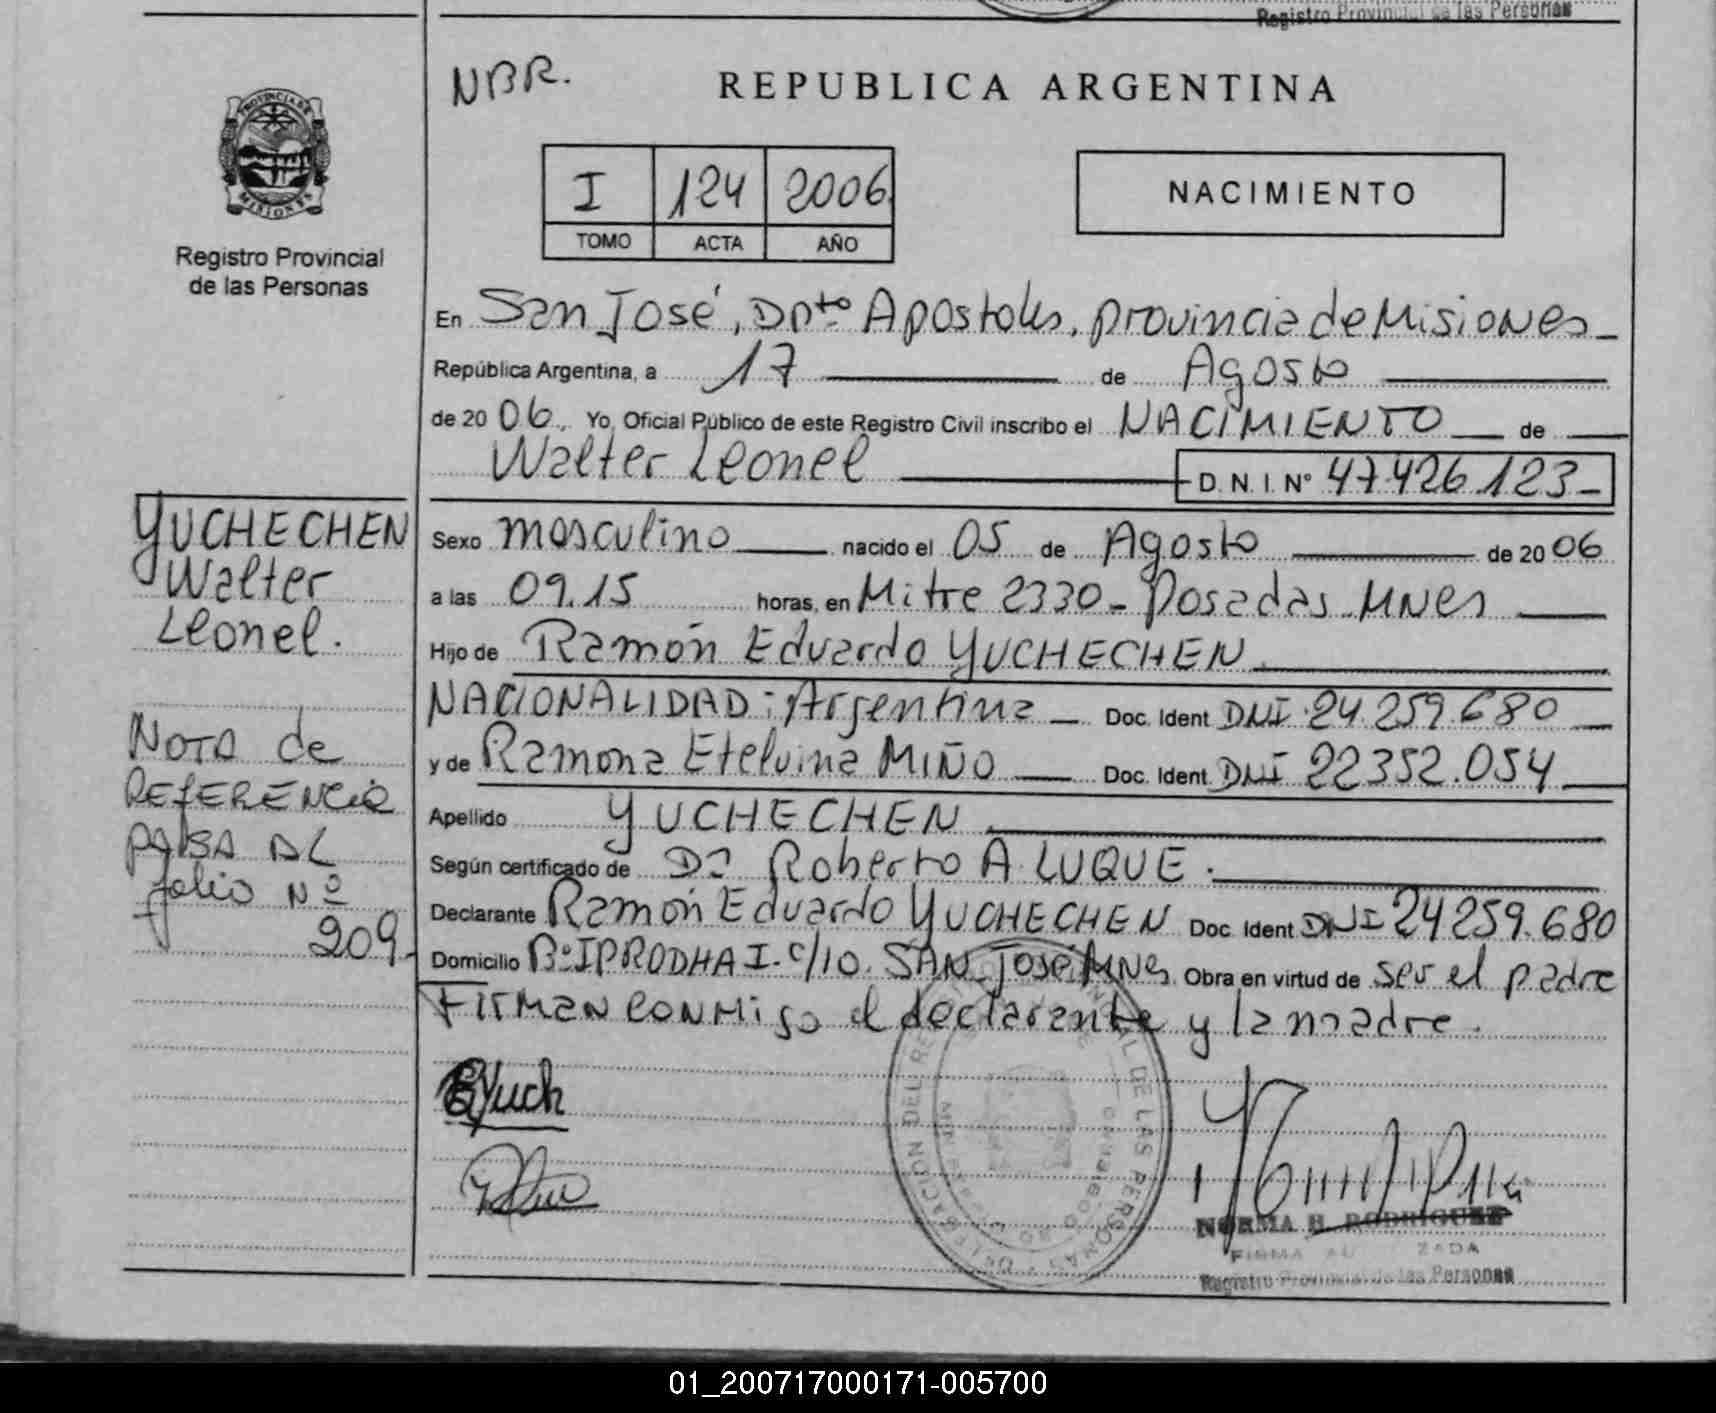 Registro Provincial de las Personas
NBR.
REPUBLICA ARGENTINA
PROVINCIA DE
MISIONES
Registro Provincial
de las Personas
I 124 2006
TOMO ACTA AÑO
NACIMIENTO
En San José, Dpto Apostoles, provincia de Misiones
República Argentina, a 17 de Agosto
de 20 06. Yo, Oficial Público de este Registro Civil inscribo el NACIMIENTO de
Walter Leonel D. N. I. Nº 47.426.123
YUCHECHEN
Walter
Leonel.
Nota de
REfERENCia
PASA AL
folio Nº
209.
Sexo masculino nacido el 05 de Agosto de 20 06
a las 09.15 horas, en Mitre 2330 - Posadas Mnes
Hijo de Ramón Eduardo YUCHECHEN
NACIONALIDAD: Argentina Doc. Ident. DNI 24.259.680
y de Ramona Etelvina MIÑO Doc. Ident. DNI 22352.054
Apellido YUCHECHEN
Según certificado de Dr Roberto A. LUQUE.
Declarante Ramón Eduardo YUCHECHEN Doc. Ident. DNI 24259.680
Domicilio Bº IPRODHA I. c/10. SAN José Mnes. Obra en virtud de ser el padre
Firman conmigo el declarante y la madre.
EYuch
NORMA H. RODRIGUEZ
Registro Provincial de las Personas
01_200717000171-005700